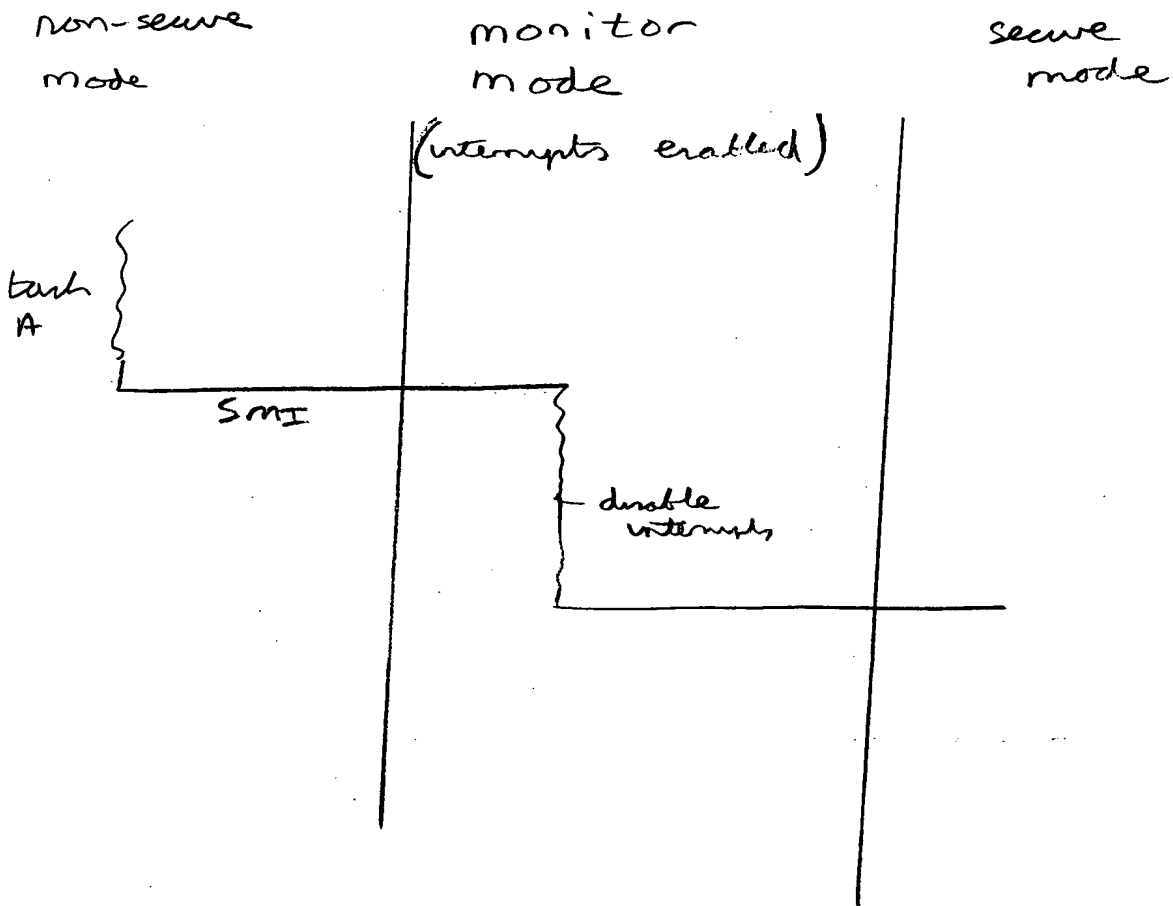 non-secure
mode
monitor
mode
(interrupts enabled)
secure
mode
task
A
SMI
disable
interrupts